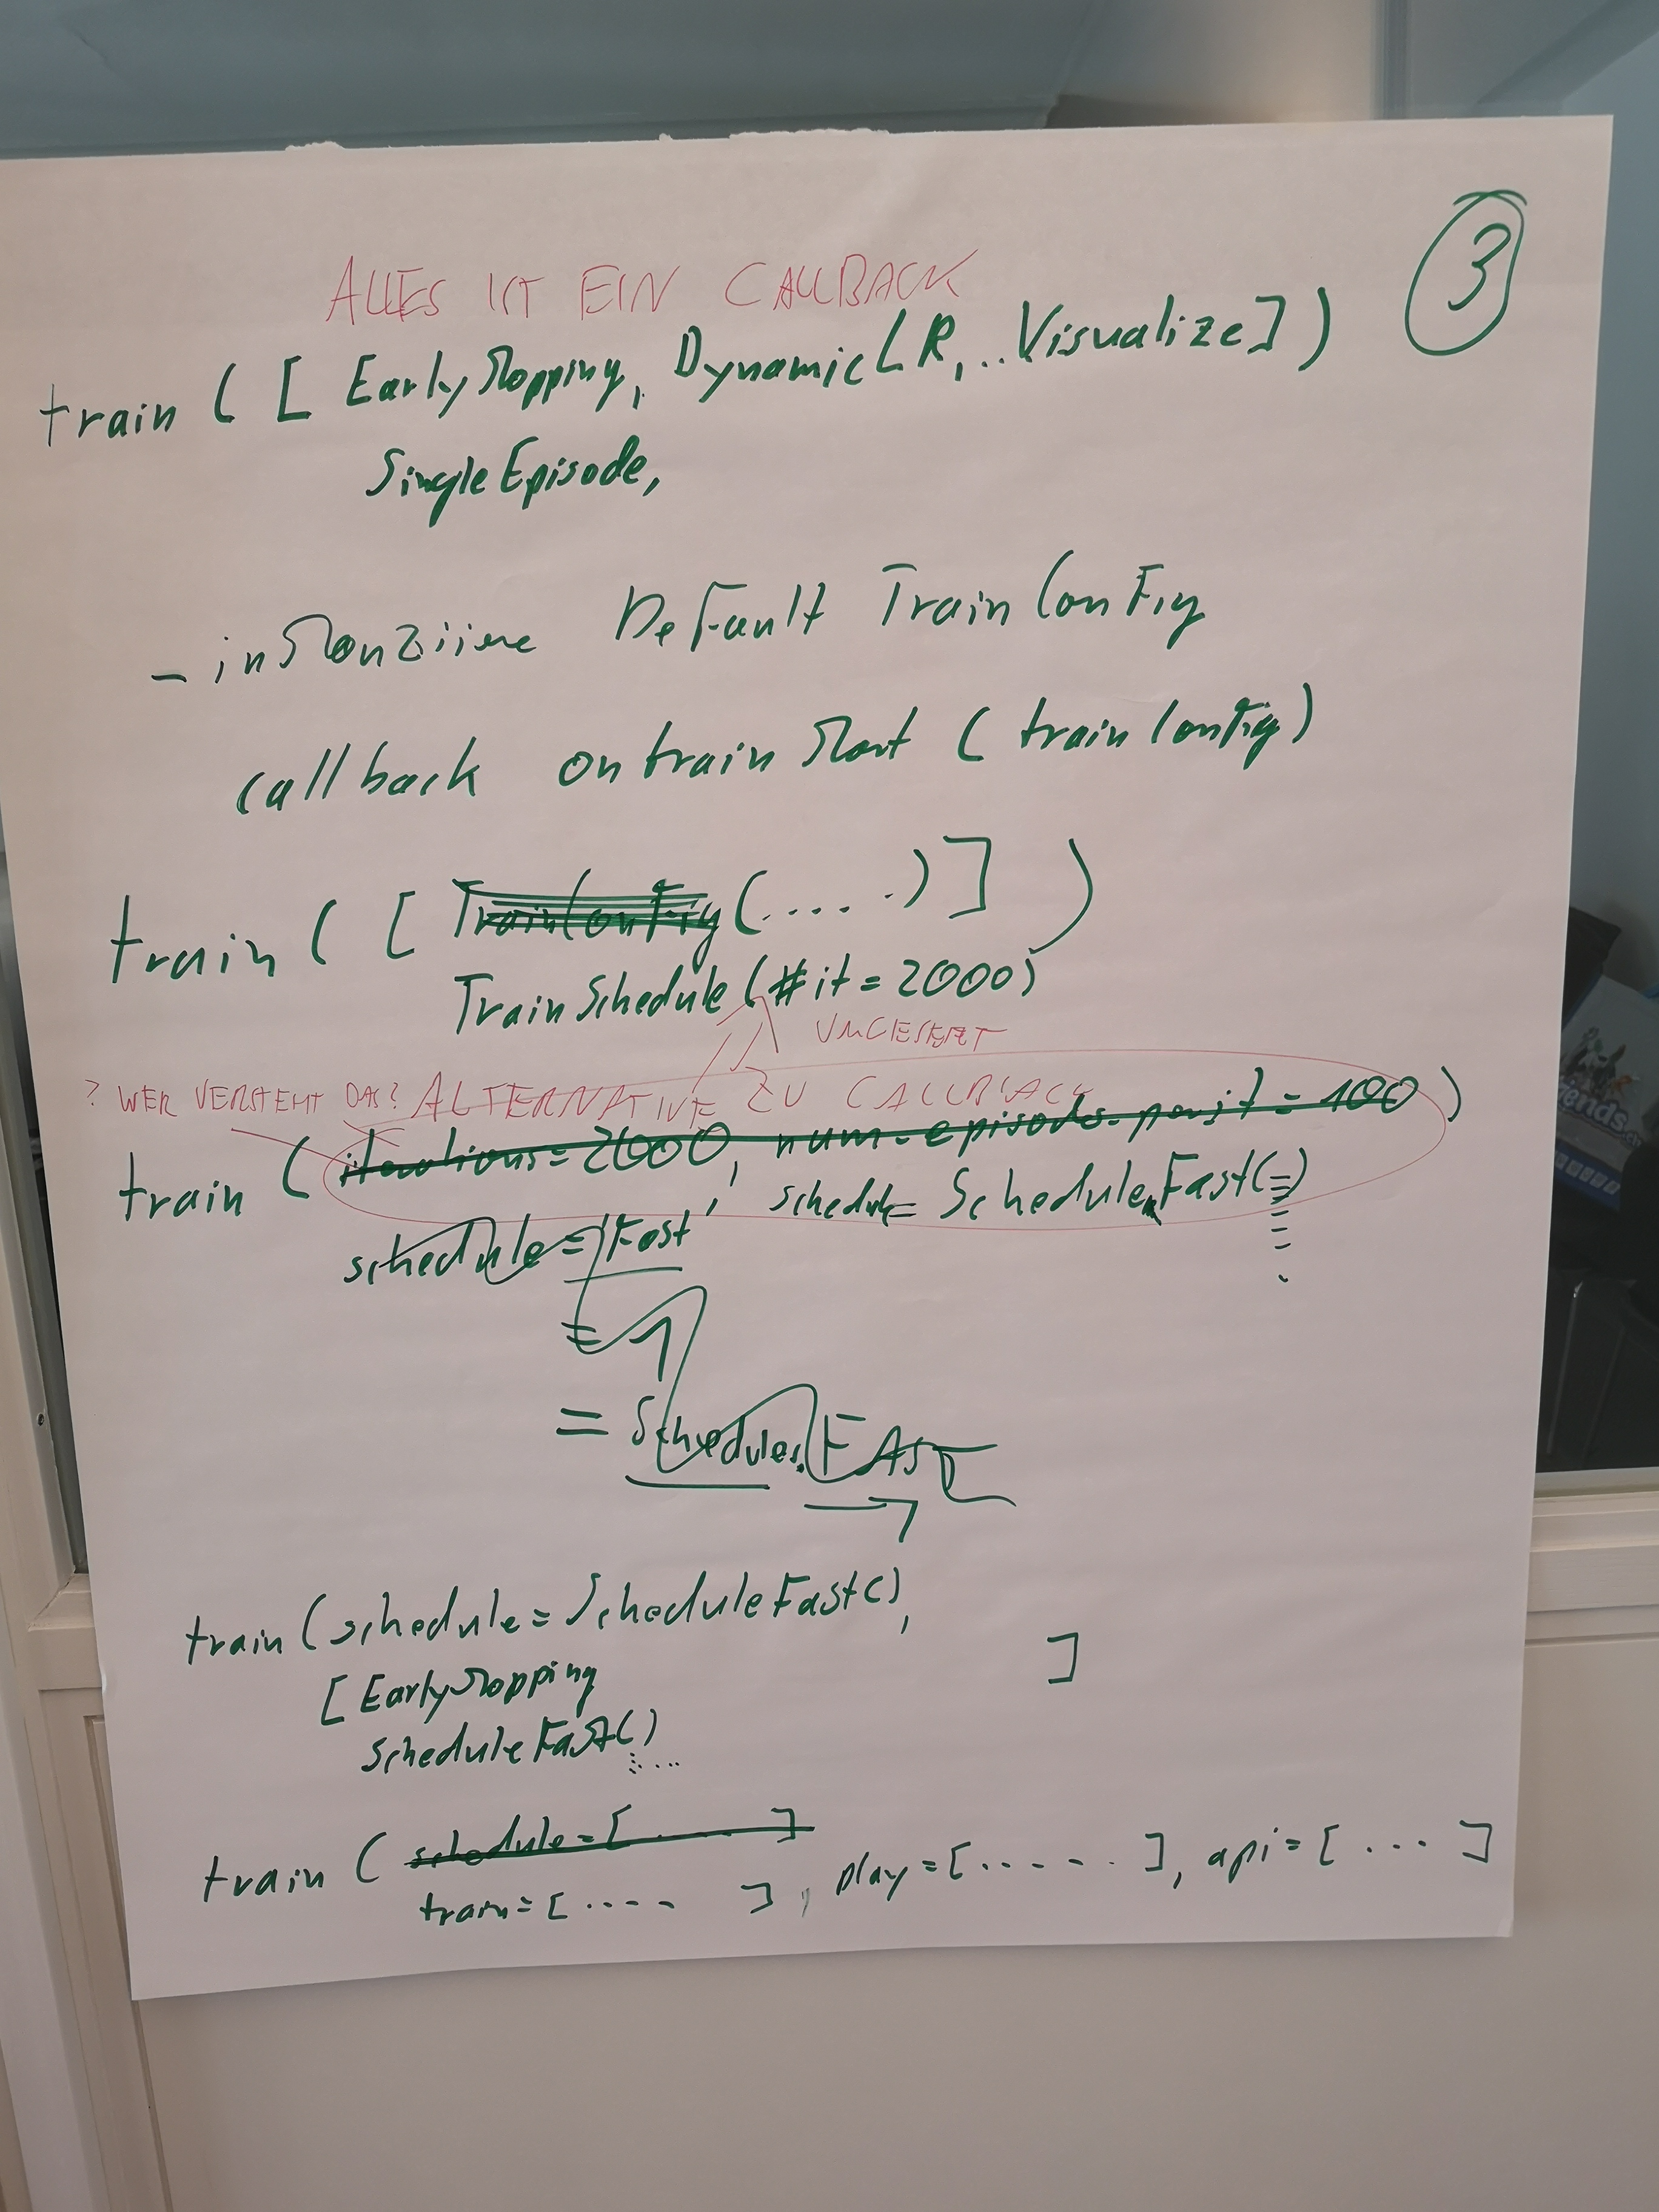 3
ALLES IST EIN CALLBACK
train ( [ EarlyStopping, DynamicLR, ..Visualize] )
SingleEpisode,
- instanziiere Default TrainConfig
callback on train start ( trainConfig)
train ( [ TrainConfig (.....) ] )
TrainSchedule (#it = 2000)
UMGESETZT
? WER VERSTEHT DAS? ALTERNATIVE ZU CALLBACK
train ( iterations = 2000, num-episodes-per-it = 100 )
schedule = 'Fast', schedule= Schedule.Fast( )
= 1
= Schedules.FAST
train (schedule = ScheduleFast(),
[ EarlyStopping ]
ScheduleFast()
train ( schedule = [ ...... ]
train= [ ..... ], play = [...... ], api= [ ... ]
friends